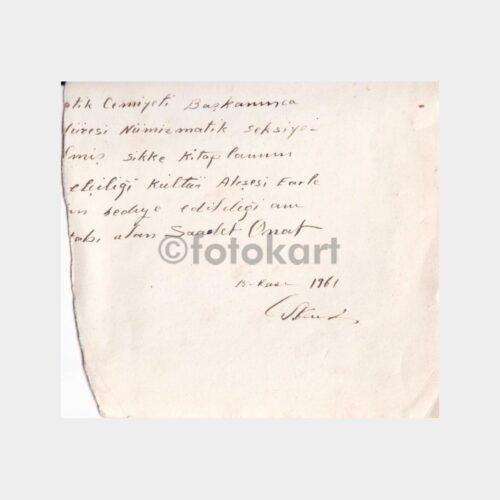 tik Cemiyeti Başkanınca
Müzesi Nümizmatik seksiyo-
lmiş sikke Kitaplarının
elçiliği Kültür Ateşesi Earle
an hediye edildiği an
tabı alan Saadet Onat
©fotokart
15-Kası 1961